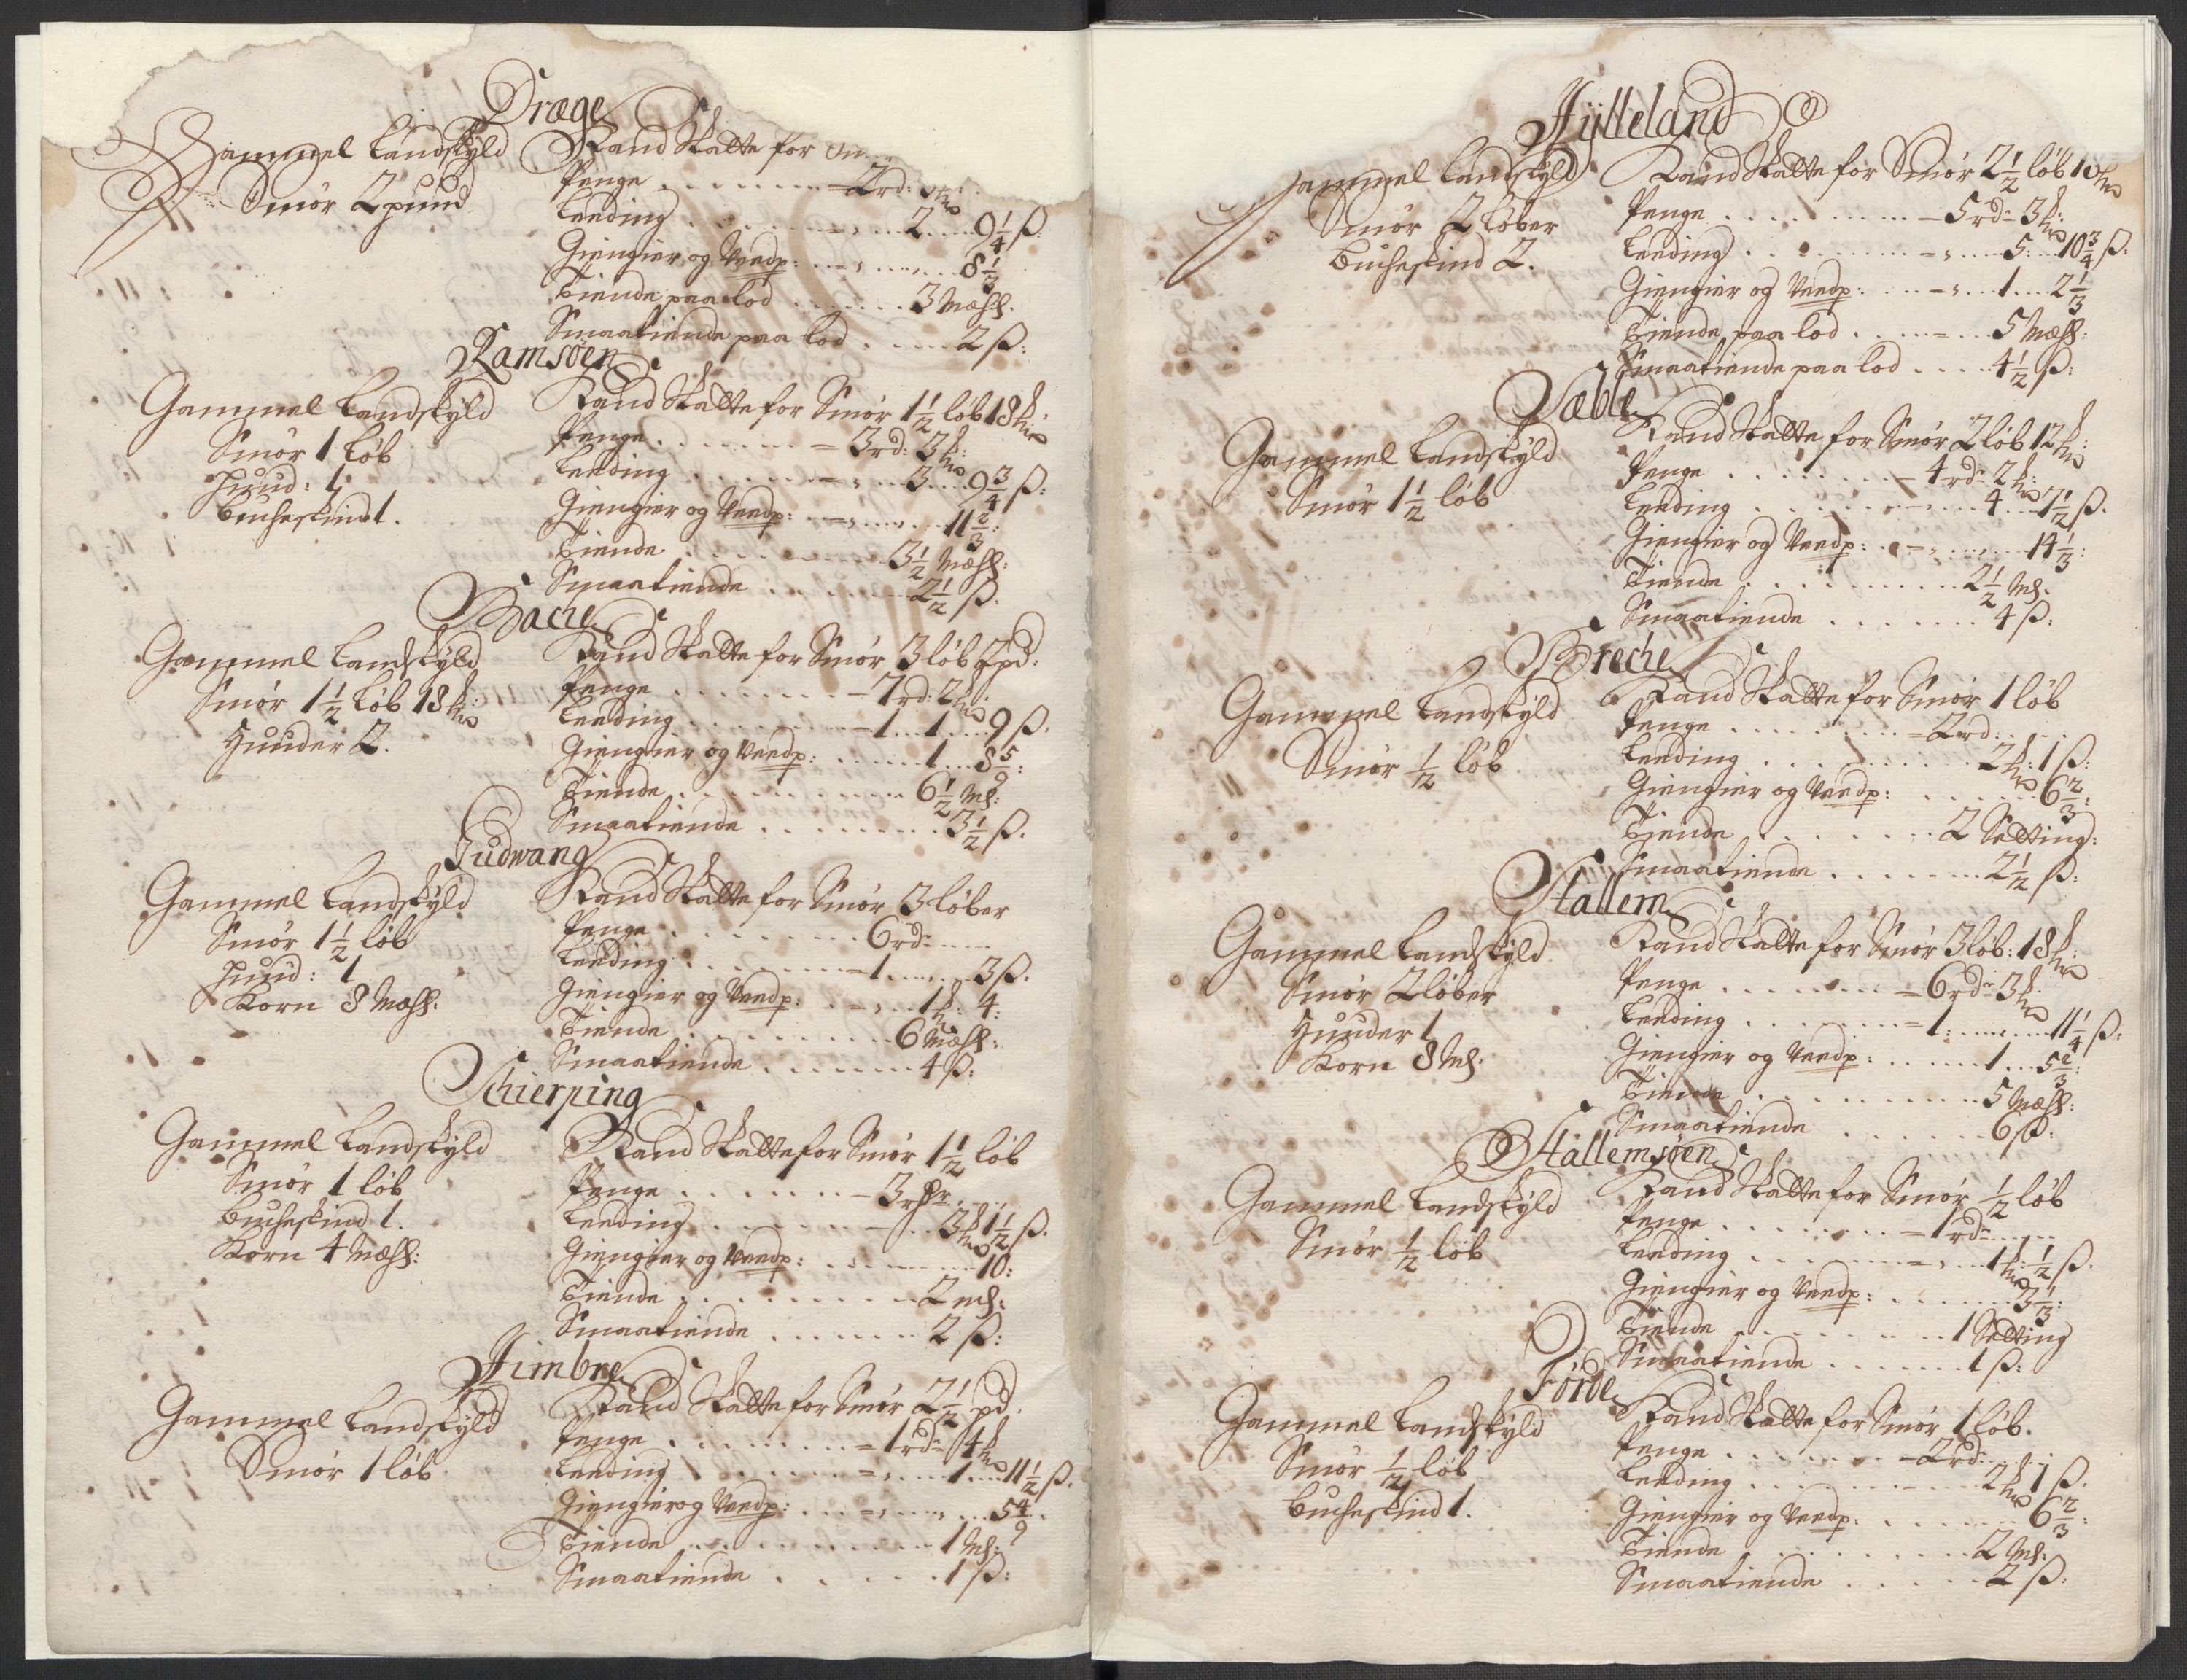 Dræge
Gammel Landskyld
Smör 2 pund
Rand Skatte for Sm
Penge . . . . 2 rd:
Leeding . . . . 2 . . 9 1/4 ß:
Giengier og Veedp: . . . 8 1/3
Tiende paa lod . . . 3 Mæhl:
Smaatiende paa lod . . . 2 ß:
Ramsöen
Gammel Landskyld
Smör 1 löb
Huud: 1
Bucheskind 1.
Rand Skatte for Smör 1 1/2 löb 18 mk:
Penge . . . . 3 rd: 3 mk:
Leeding . . . . 3 . . 9 3/4 ß:
Giengier og Veedp: . . . 11 2/3:
Tiende . . . . 3 1/2 Mæhl:
Smaatiende . . . . 2 1/2 ß.
Bache
Gammel Landskyld
Smör 1 1/2 löb 18 mk:
Huuder 2.
Rand Skatte for Smör 3 löb 2 pd:
Penge . . . . 7 rd: 2 mk:
Leeding . . . . 1 . . 1 . . 9 ß.
Giengier og Veedp: . . . 1 . . 8 5/9:
Tiende . . . . 6 1/2 Ml:
Smaatiende . . . . 3 1/2 ß.
Gudwang
Gammel Landskyld
Smör 1 1/2 löb
Huud: 1
Korn 8 Mæhl:
Rand Skatte for Smör 3 löber
Penge . . . . 6 rdr
Leeding . . . . 1 . . . . 3 ß.
Giengier og Veedp: . . . 1 mk: 4:
Tiende . . . . 6 Mæhl:
Smaatiende . . . . 4 ß:
Schierping
Gammel Landskyld
Smör 1 löb
Bucheskind 1.
Korn 4 Mæhl:
Rand Skatte for Smör 1 1/2 löb
Penge . . . . 3 rdr
Leeding . . . . 3 mk 1 1/2 ß.
Giengier og Veedp: . . . 10:
Tiende . . . . 2 Ml:
Smaatiende . . . . 2 ß:
Fimbre
Gammel Landskyld
Smör 1 löb
Rand Skatte for Smör 2 1/2 pd.
Penge . . . . 1 rdr 4 mk
Leeding . . . . 1 . . 11 1/2 ß.
Giengier og Veedp: . . . 5 4/9.
Tiende . . . . 1 Ml:
Smaatiende . . . . 1 ß:
Jÿlleland
Gammel Landskyld
Smör 2 löber
Bucheskind 2.
Rand Skatte for Smör 2 1/2 löb 10 mk
Penge . . . . 5 rdr 3 mk:
Leeding . . . . 5 . . 10 3/4 ß.
Giengier og Veedp: . . . 1 . . 2 1/3
Tiende paa lod . . . 5 Mæhl:
Smaatiende paa lod . . . 4 1/2 ß:
Sæble
Gammel Landskyld
Smör 1 1/2 löb
Rand Skatte for Smör 2 löb 12 mk:
Penge . . . . 4 rdr 2 mk:
Leeding . . . . 4 . . 7 1/2 ß.
Giengier og Veedp: . . . 14 1/3:
Tiende . . . . 2 1/2 Ml.
Smaatiende . . . . 4 ß:
Breche
Gammel Landskyld
Smör 1/2 löb
Rand Skatte for Smör 1 löb
Penge . . . . 2 rd:
Leeding . . . . 2 mk: 1 ß:
Giengier og Veedp: . . . 6 2/3:
Tiende . . . . 2 Setting:
Smaatiende . . . . 2 1/2 ß:
Stallem
Gammel Landskyld
Smör 2 löber
Huuder 1
Korn 8 Ml:
Rand Skatte for Smör 3 löb: 18 mk:
Penge . . . . 6 rdr 3 mk.
Leeding . . . . 1: . . . . 11 1/4 ß:
Giengier og Veedp: . . . 1 . . 5 2/3:
Tiende . . . . 5 Mæhl:
Smaatiende . . . . 6 ß:
Stallemsöen
Gammel Landskyld
Smör 1/2 löb
Rand Skatte for Smör 1/2 löb
Penge . . . . 1 rdr
Leeding . . . . 1 mk: 1/2 ß.
Giengier og Veedp: . . . 3 1/3:
Tiende . . . . 1 Setting
Smaatiende . . . . 1 ß:
Förde
Gammel Landskyld
Smör 1/2 löb
Bucheskind 1.
Rand Skatte for Smör 1 löb.
Penge . . . . 2 rd:
Leeding . . . . 2 mk 1 ß.
Giengier og Veedp: . . . 6 2/3:
Tiende . . . . 2 Ml:
Smaatiende . . . . 2 ß.